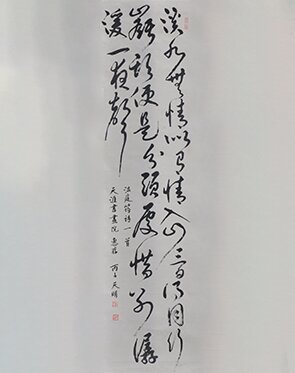 溪水無情似有情入山三日得同行
嶺頭便是分頭處惜別潺
湲一夜聲
温庭筠詩一首
天涯書畫院 惠存 丙子 天明